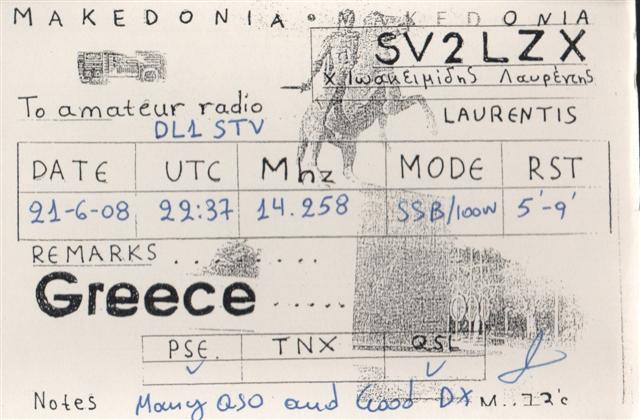 MAKEDONIA • MAKEDONIA
SV2LZX
Χ Ιωακειμίδης Λαυρέντης
To amateur radio
LAURENTIS
DL1 STV
DATE UTC Mhz MODE RST
21-6-08 22:37 14.258 SSB/100W 5'-9'
REMARKS . . . . . . . .
Greece .....
PSE. TNX QSL
Notes Many QSO and Good DX M..73's